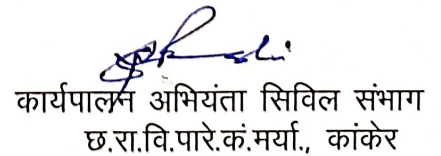 कार्यपालन अभियंता सिविल संभाग
छ.रा.वि.पारे.कं.मर्या., कांकेर